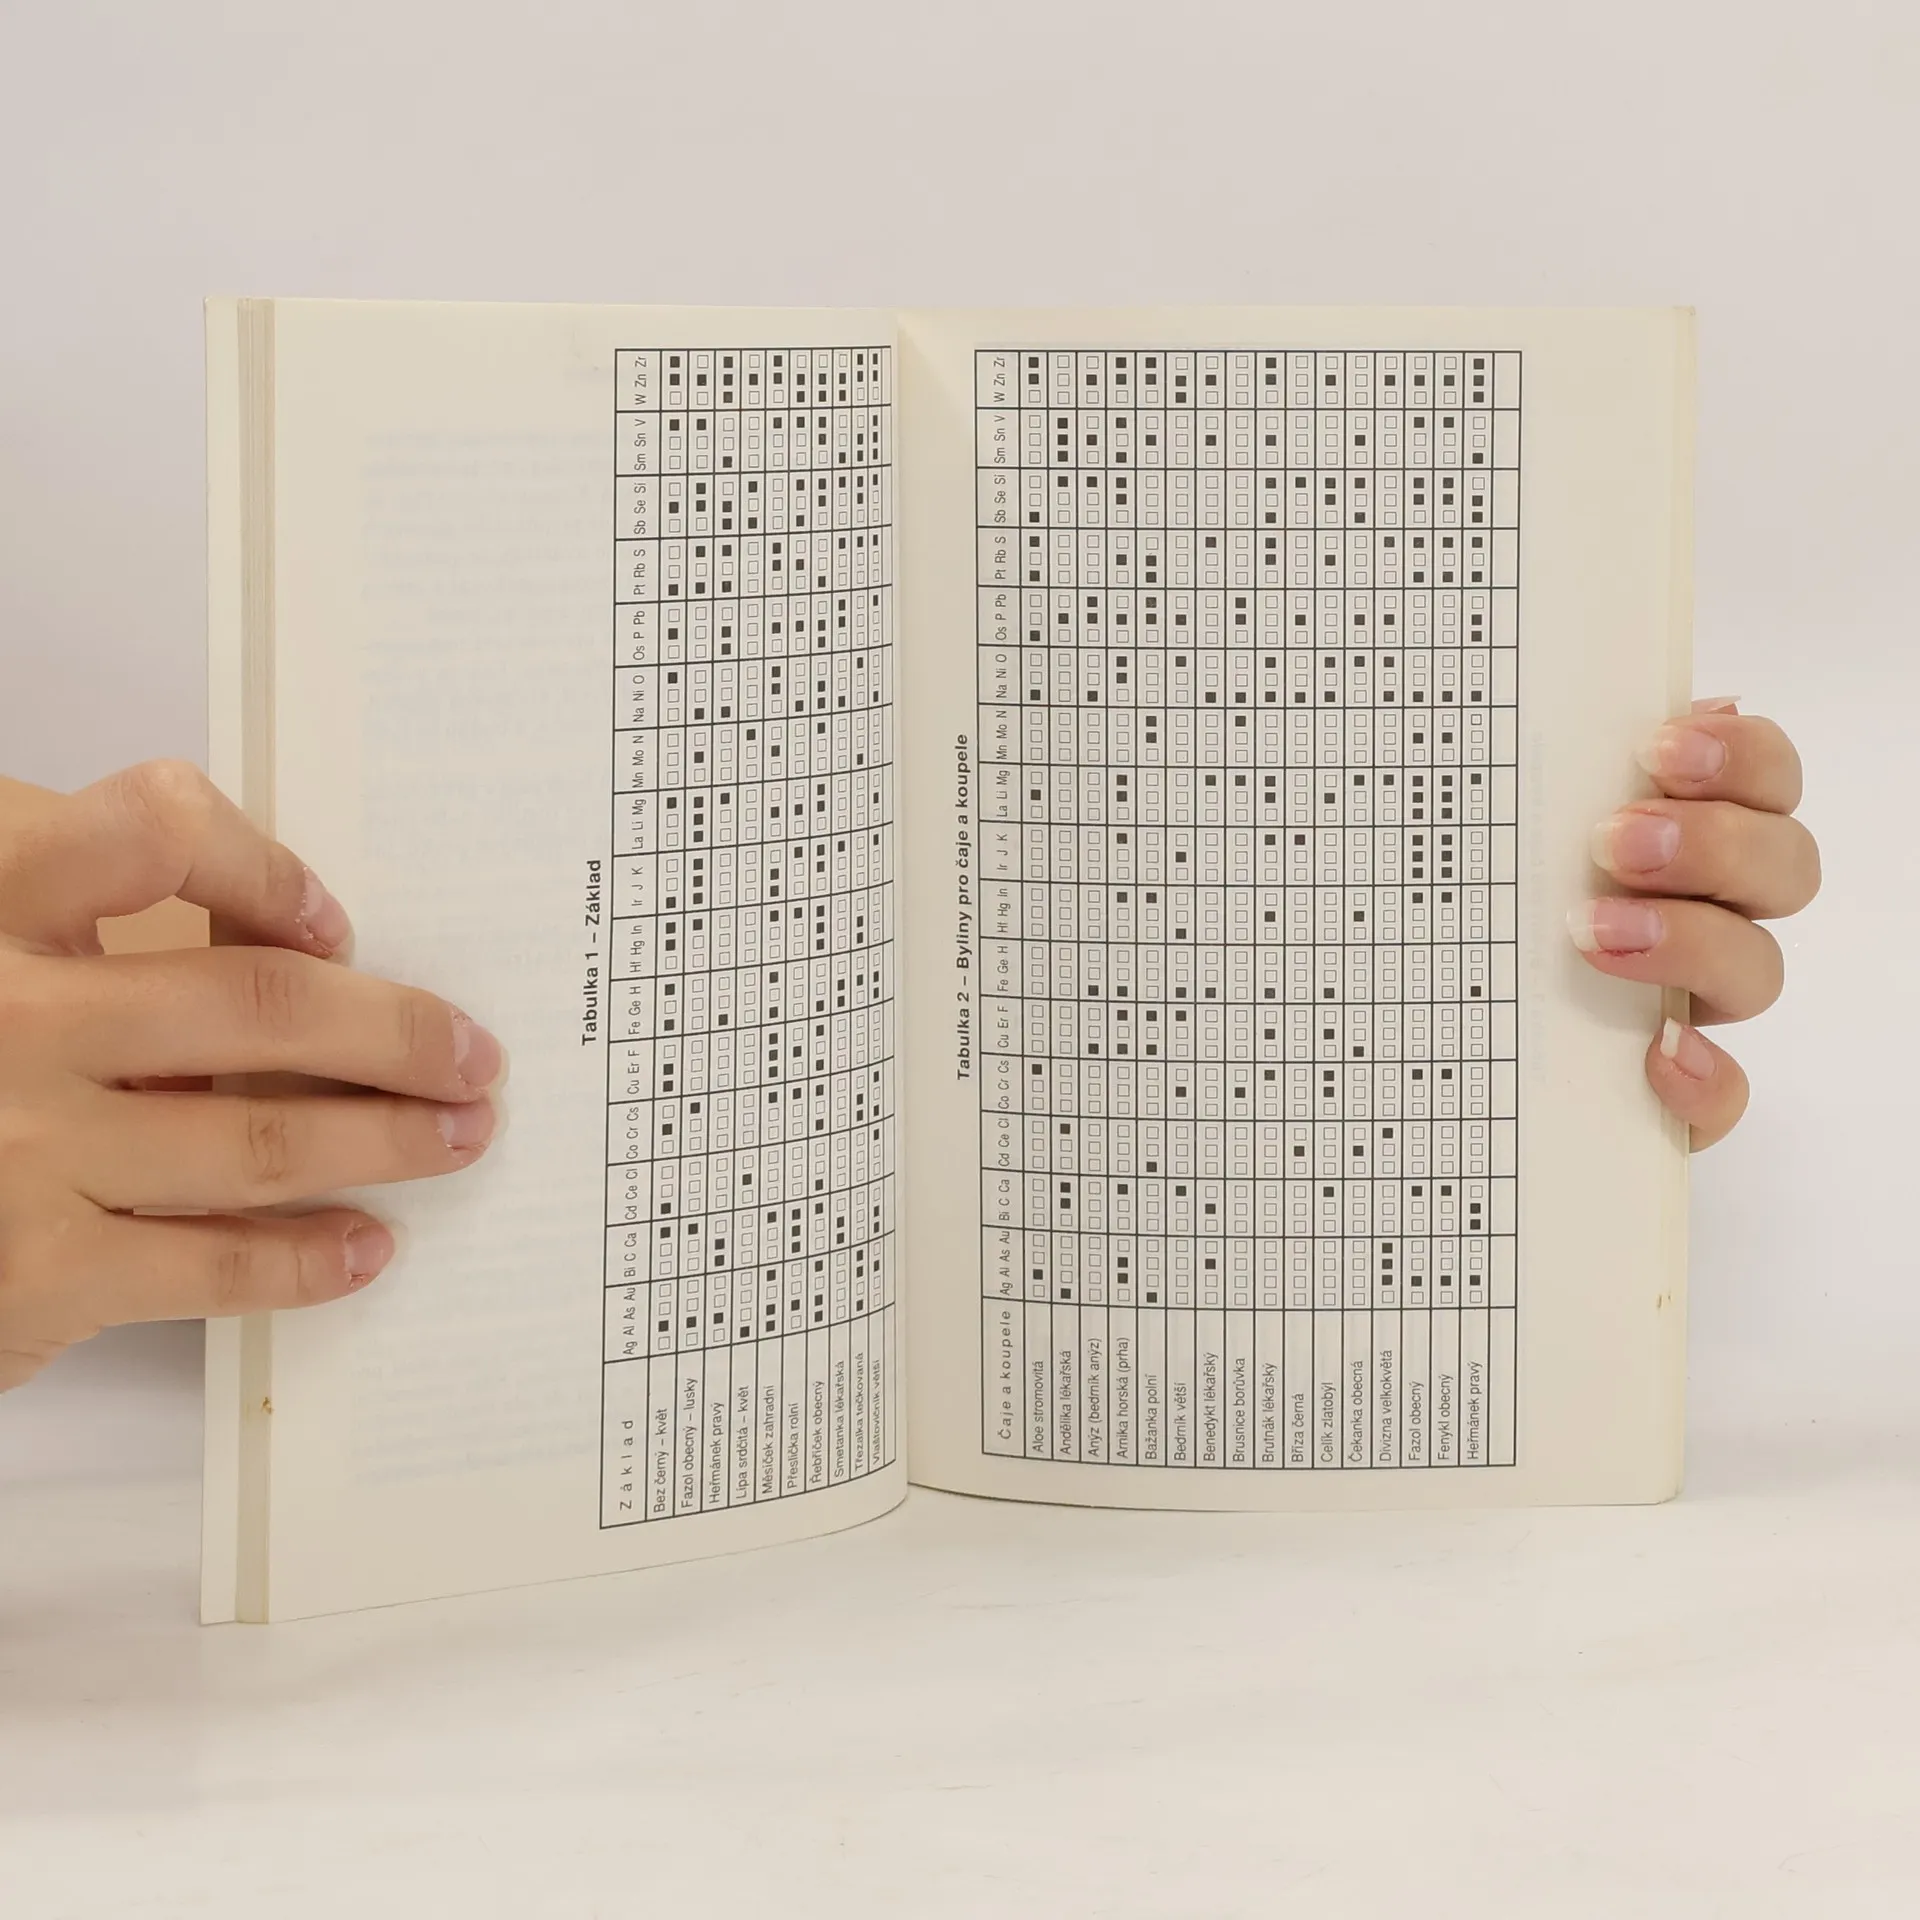 Tabulka 1 – Základ
Základ Ag Al As Au Bi C Ca Cd Ce Cl Co Cr Cs Cu Er F Fe Ge H Hf Hg In Ir J K La Li Mg Mn Mo N Na Ni O Os P Pb Pt Rb S Sb Se Si Sm Sn V W Zn Zr
Bez černý – květ
Fazol obecný – lusky
Heřmánek pravý
Lípa srdčitá – květ
Měsíček zahradní
Přeslička rolní
Řebříček obecný
Smetanka lékařská
Třezalka tečkovaná
Vlaštovičník větší
Tabulka 2 – Byliny pro čaje a koupele
Čaje a koupele Ag Al As Au Bi C Ca Cd Ce Cl Co Cr Cs Cu Er F Fe Ge H Hf Hg In Ir J K La Li Mg Mn Mo N Na Ni O Os P Pb Pt Rb S Sb Se Si Sm Sn V W Zn Zr
Aloe stromovitá
Andělika lékařská
Anýz (bedrník anýz)
Arnika horská (prha)
Bažanka polní
Bedrník větší
Benedykt lékařský
Brusnice borůvka
Brutnák lékařský
Bříza černá
Celík zlatobýl
Čekanka obecná
Divizna velkokvětá
Fazol obecný
Fenykl obecný
Heřmánek pravý